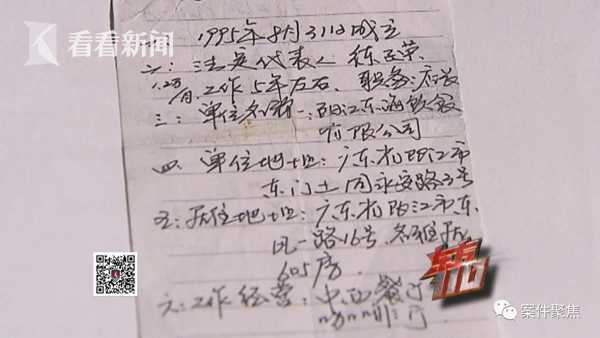 看看新闻
1995年8月31日成立
二：法定代表人 练正荣
工作5年左右. 职务：店长
三：单位名称：阳江东海饮食
有限公司
四. 单位地址：广东省阳江市
东门土同永安路3号
五：居住地址：广东省阳江市东
风一路16号
605房.
六：工作经营：中西餐厅
案件聚焦